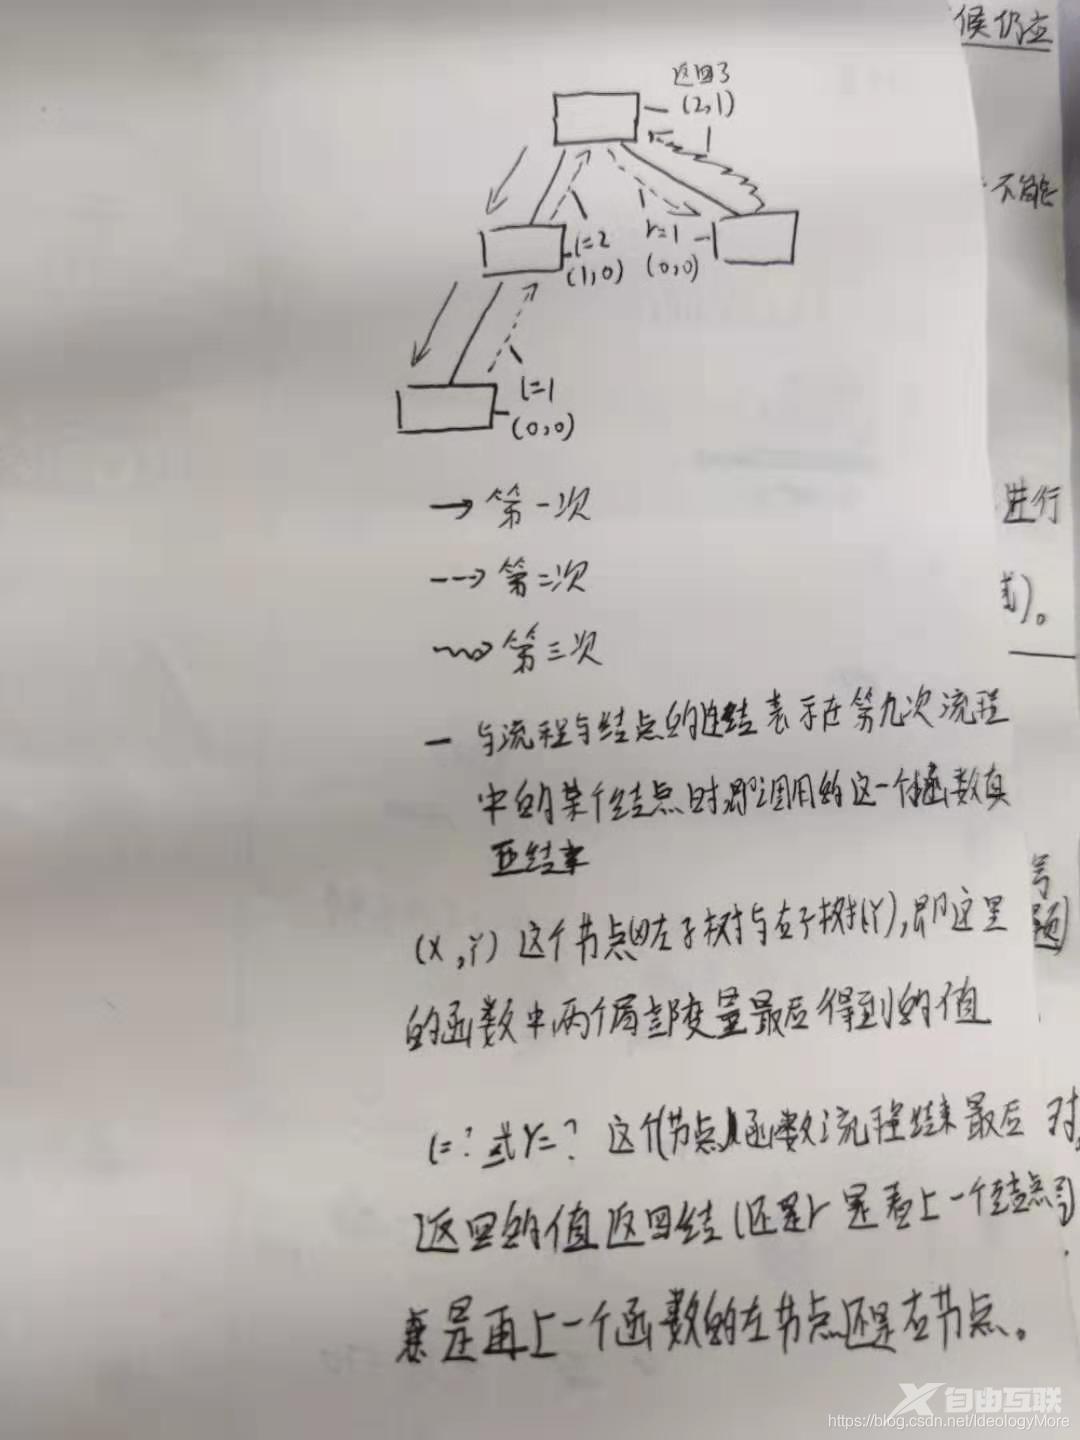 候仍应
返回3
(2,1)
不能
l=2
(1,0)
r=1
(0,0)
l=1
(0,0)
→ 第一次
进行
--→ 第二次
式)。
~~→ 第三次
— 与流程与结点的连结表示在第九次流程
中的某个结点时即调用的这一个函数真
正结束
号
题)
(X,Y) 这个节点的左子树与右子树(Y),即这里
的函数中两个局部变量最后得到的值
l=? 或r=? 这个(节点)函数流程结束最后 对
返回的值返回结(还是r 是看上一个结点
是再上一个函数的左节点还是右节点。
自由互联
https://blog.csdn.net/IdeologyMore